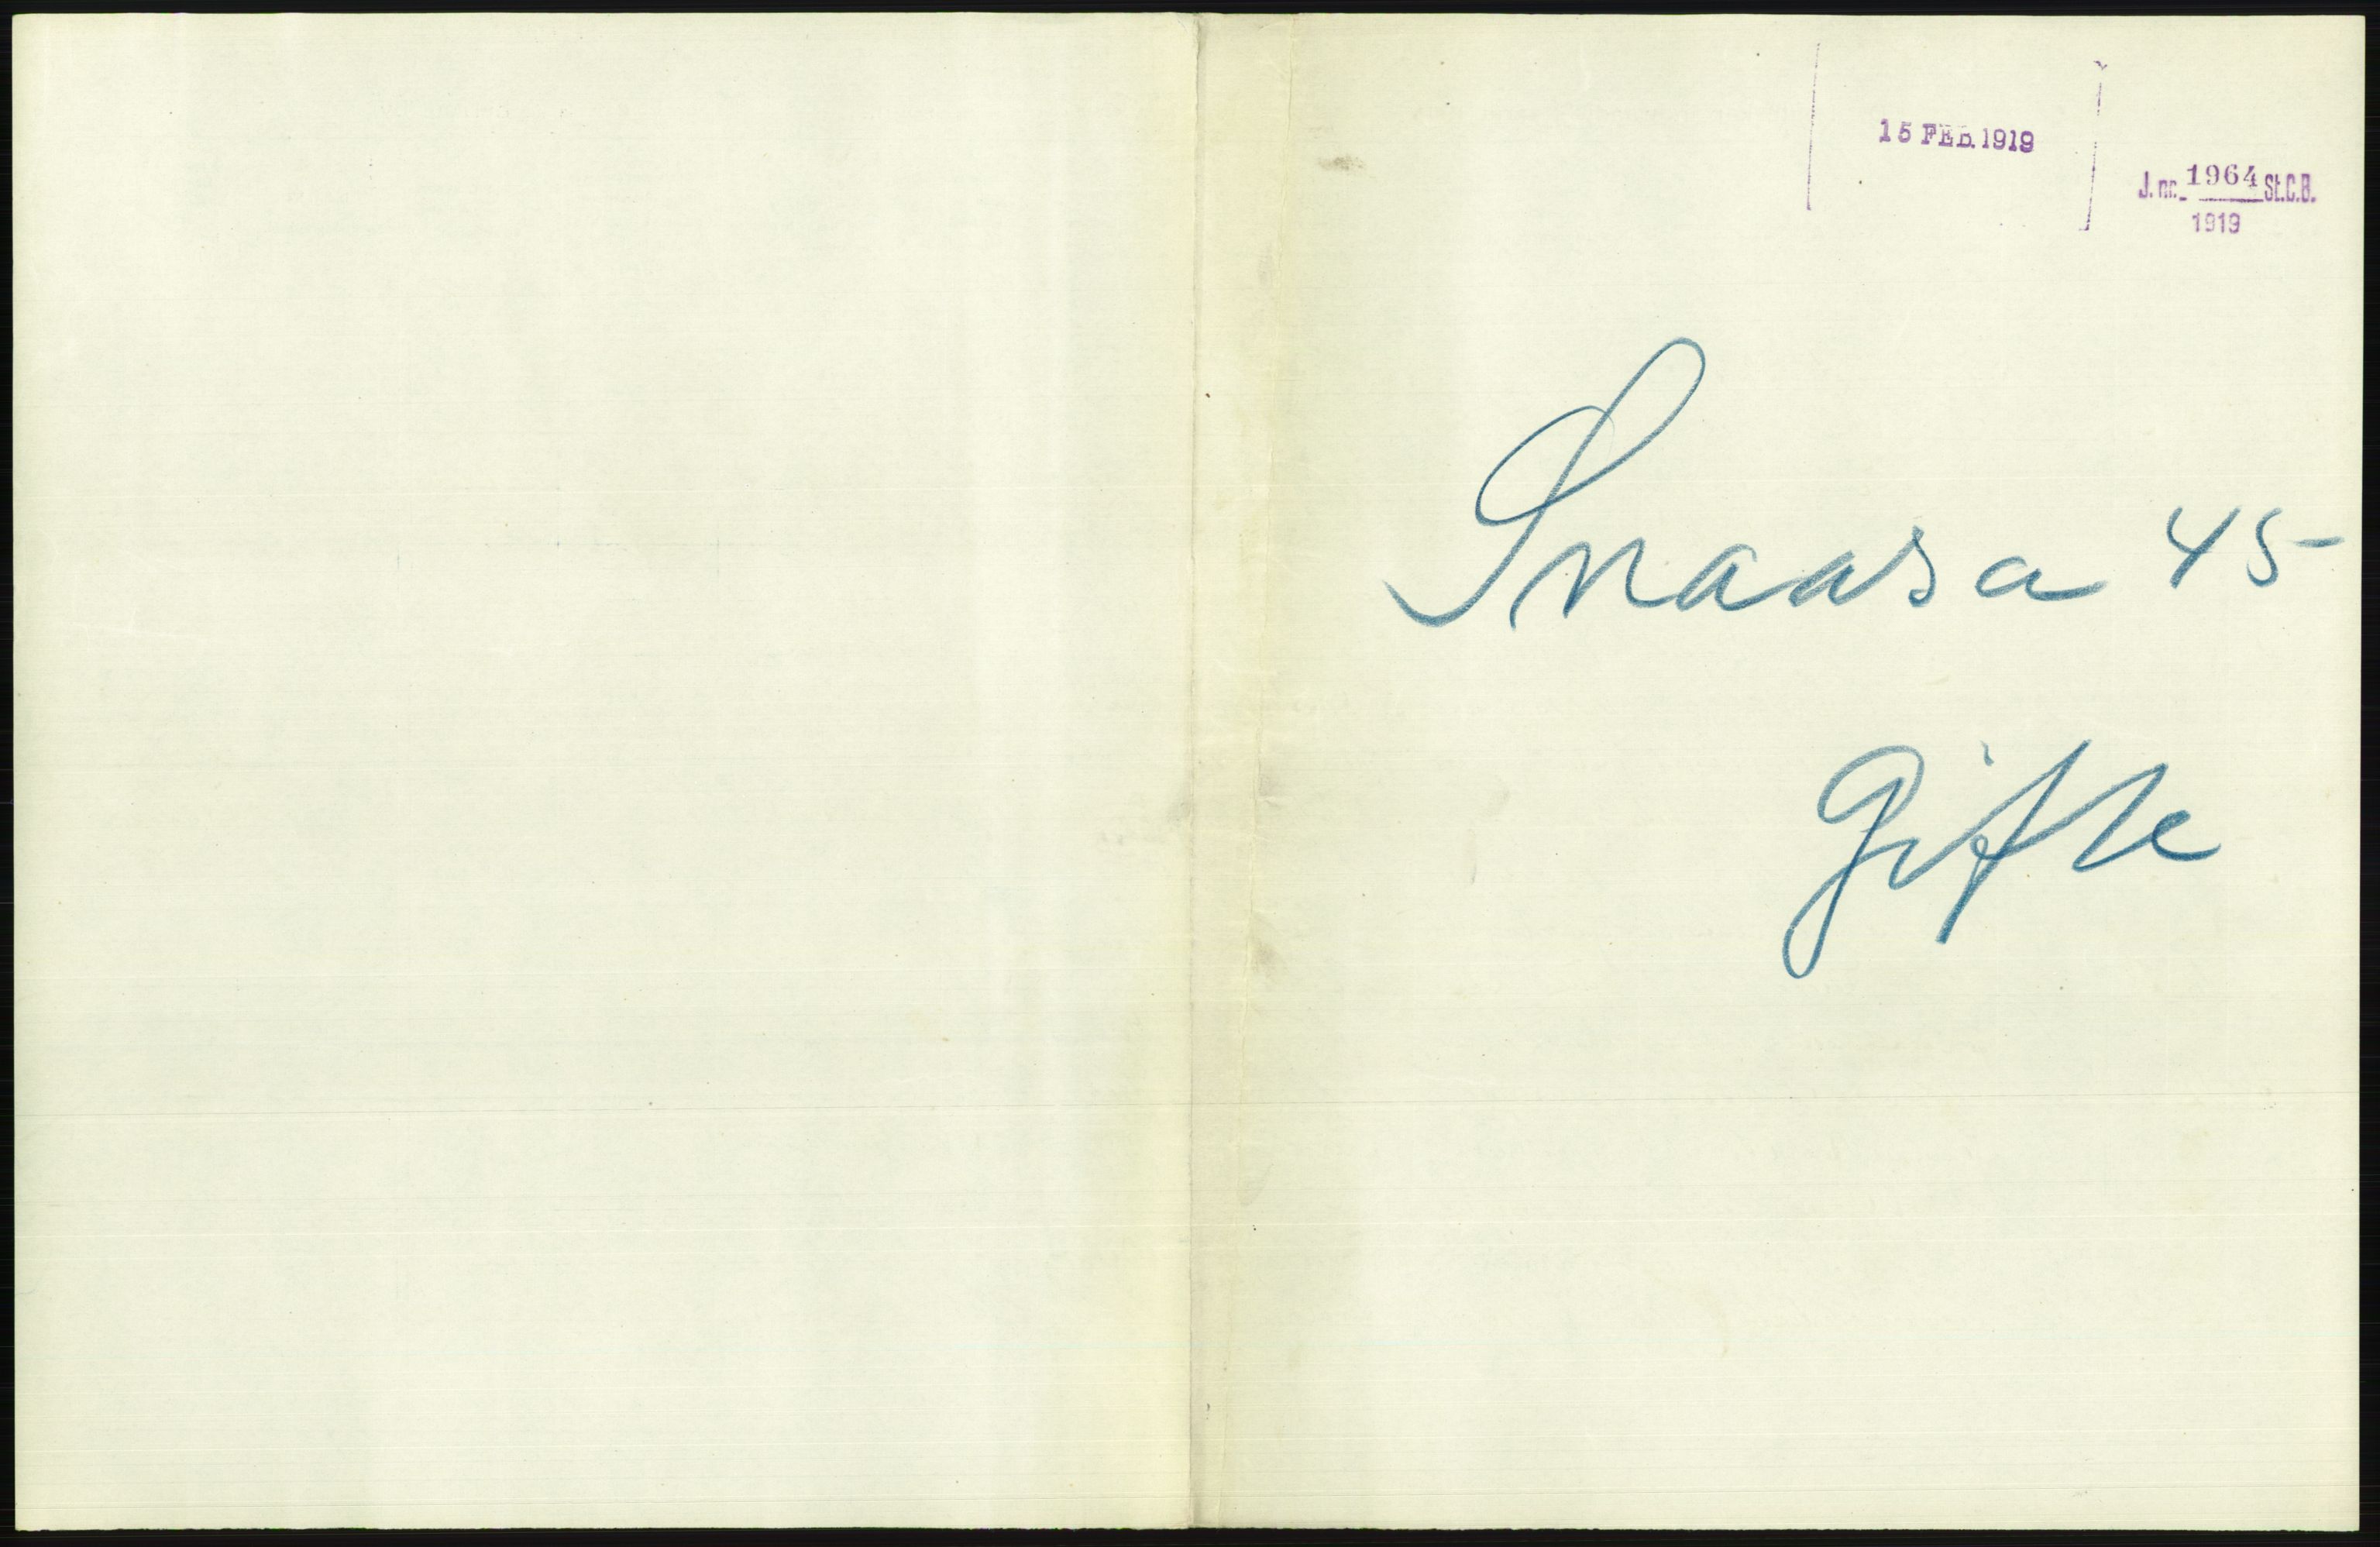 15 FEB. 1919
J. nr. 1964 St.C.B.
1919
Snaasa 45
Gifte